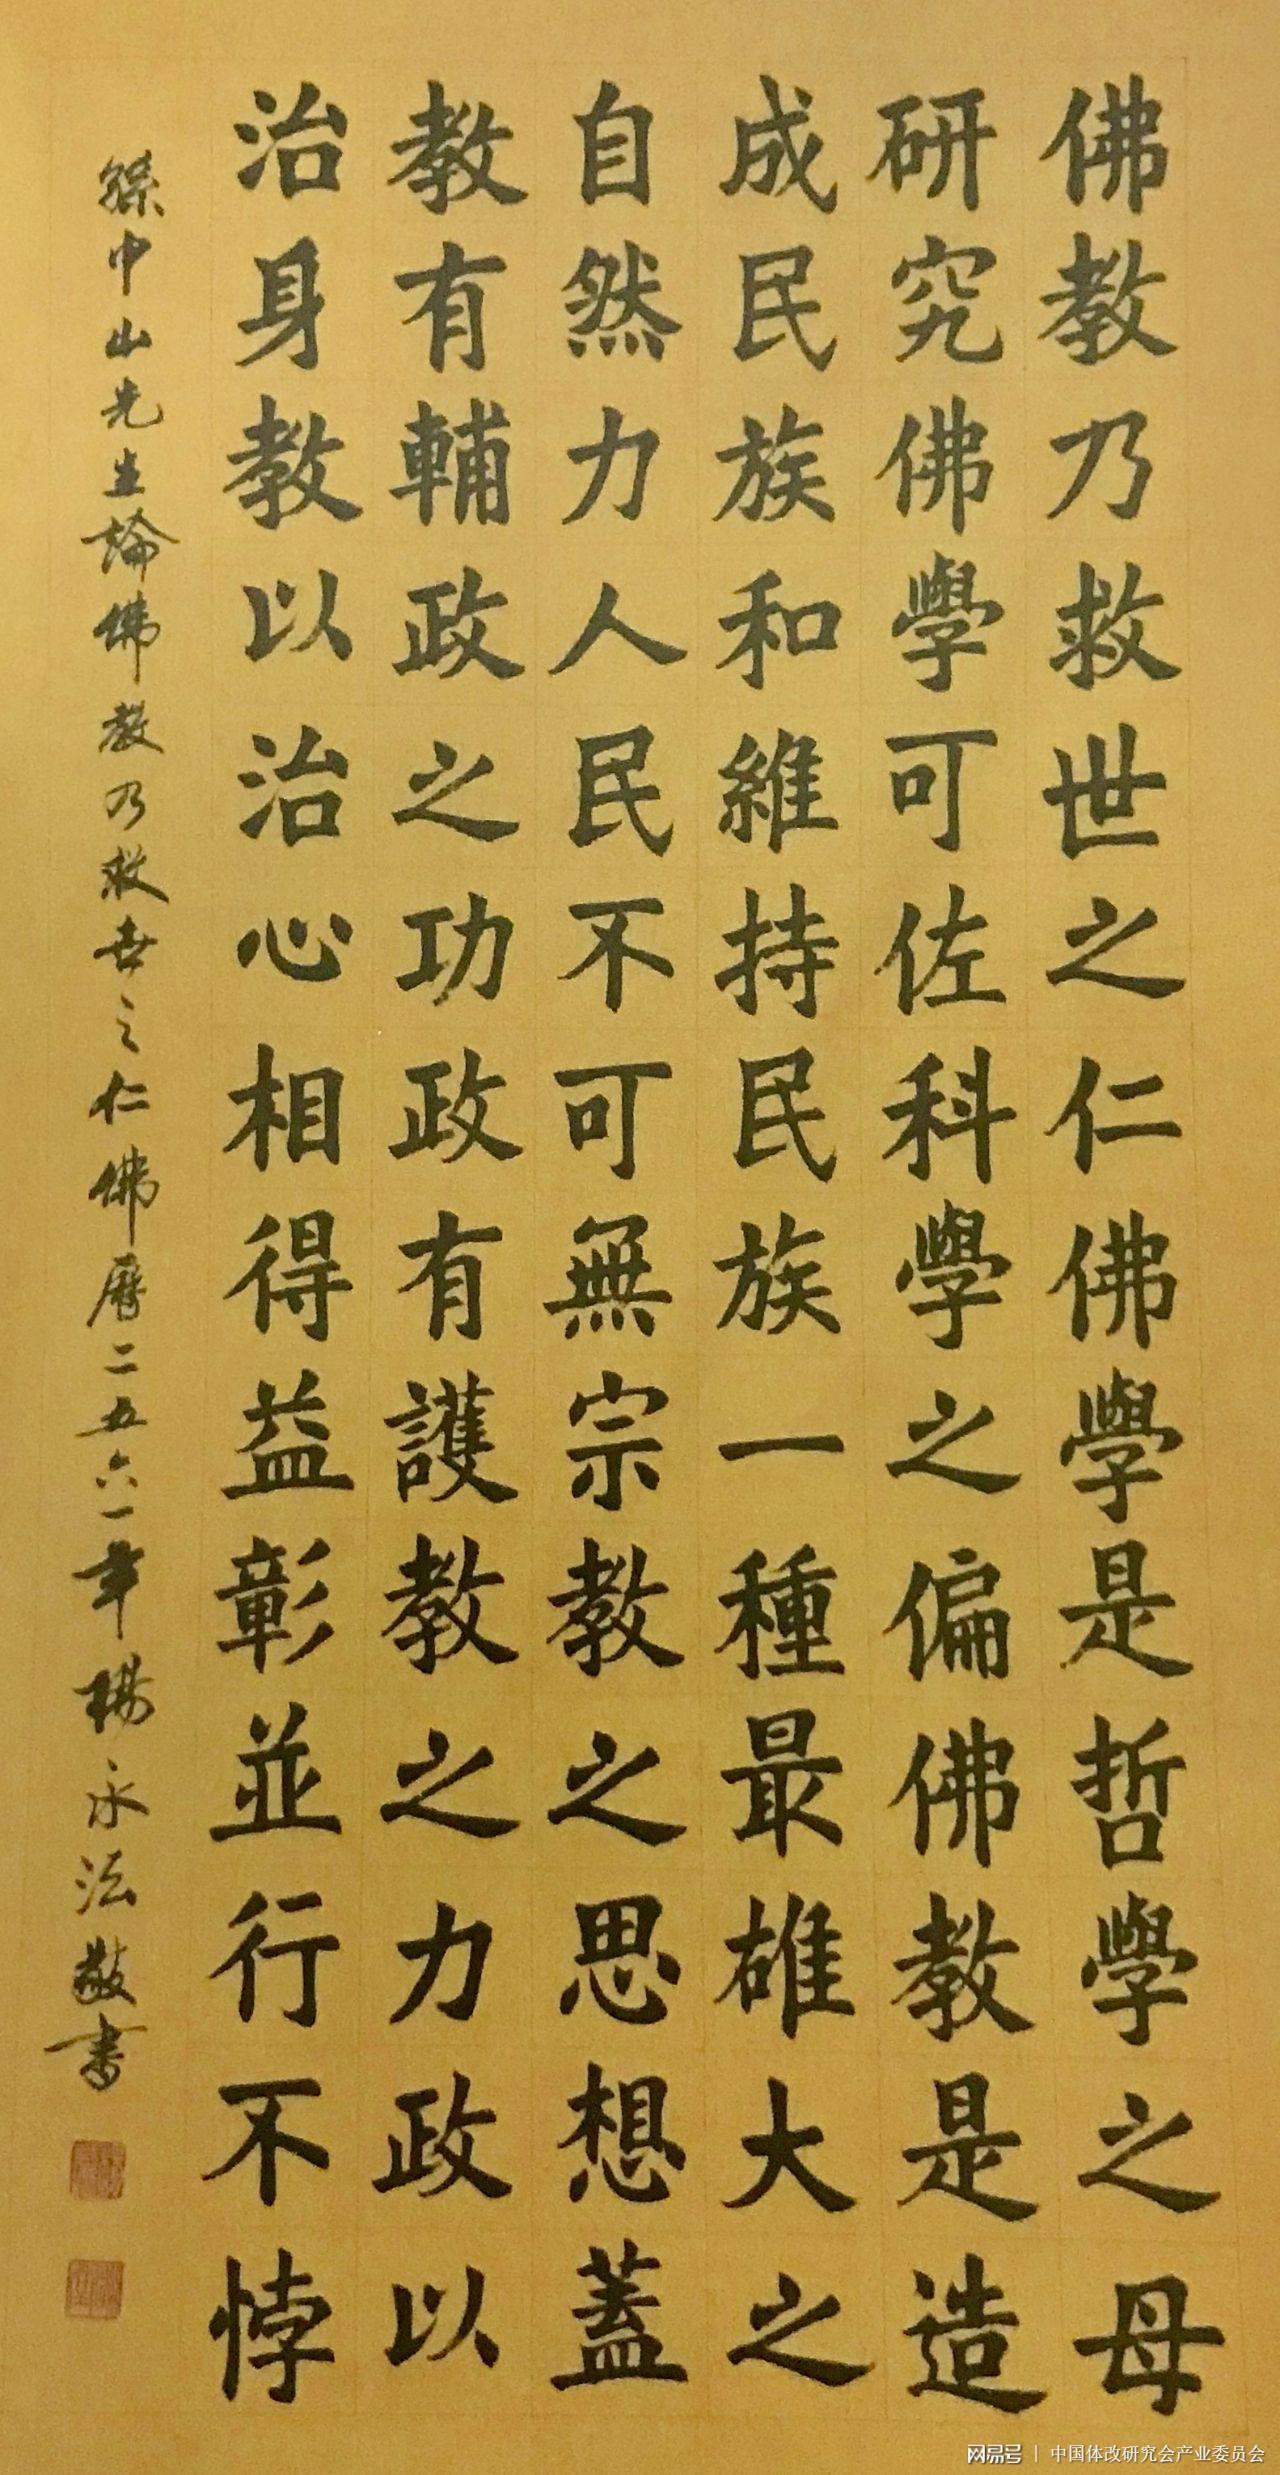 佛教乃救世之仁佛學是哲學之母
研究佛學可佐科學之偏佛教是造
成民族和維持民族一種最雄大之
自然力人民不可無宗教之思想蓋
教有輔政之功政有護教之力政以
治身教以治心相得益彰並行不悖
孫中山先生論佛教乃救世之仁佛曆二五六一年楊永法敬書
网易号 | 中国体改研究会产业委员会